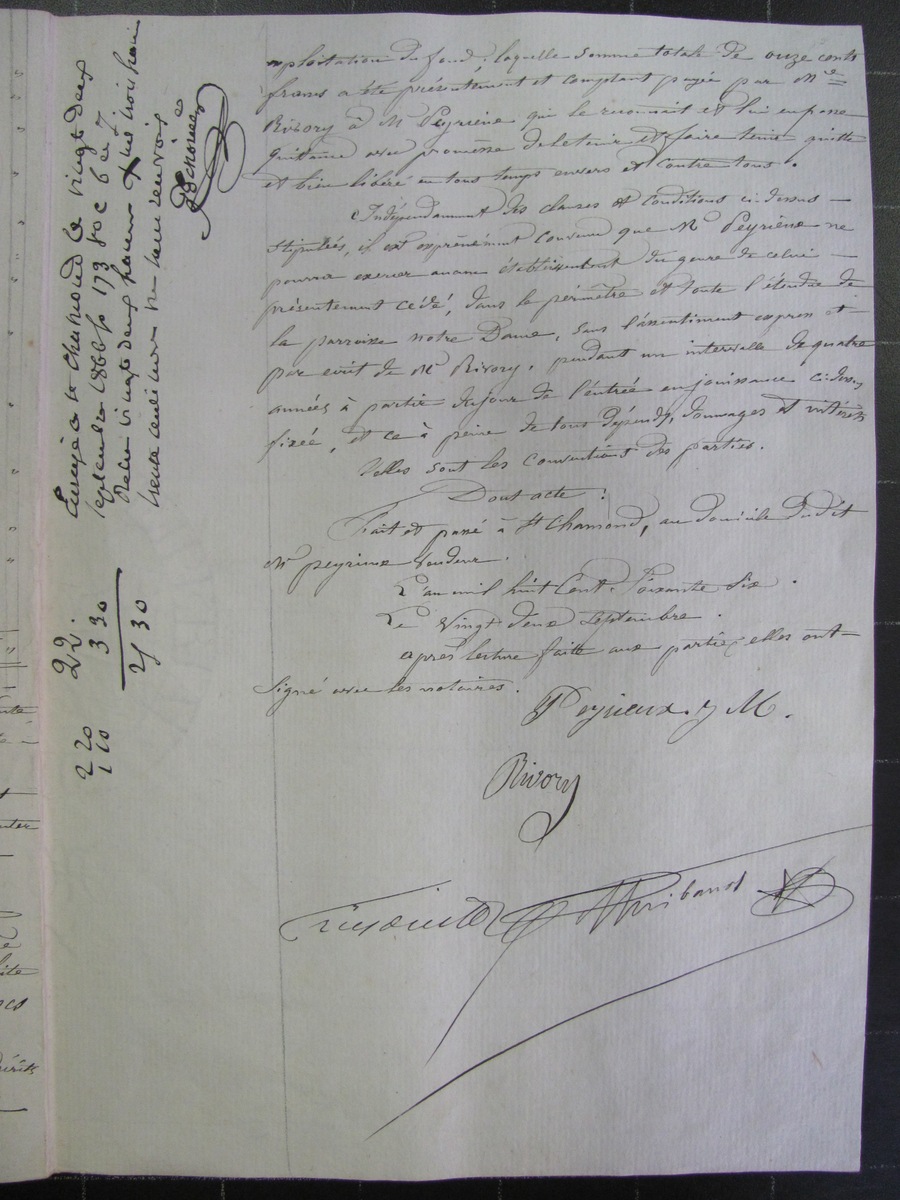 exploitation du fond; laquelle somme totale de onze cents
francs a été présentement et comptant payée par Mr
Rivory à Mr Peyrieux qui le reconnait et lui en passe
quittance avec promesse de le tenir et faire tenir quitte
et bien libéré en tous temps envers et contre tous.
Indépendamment des clauses et conditions ci-dessus
stipulées, il est expressément convenu que Mr Peyrieux ne
pourra exercer aucun établissement du genre de celui
présentement cédé, dans le périmètre et toute l'étendue de
la paroisse notre Dame, sans l'assentiment exprès et
par écrit de Mr Rivory, pendant un intervalle de quatre
années à partir du jour de l'entrée en jouissance ci-dessus
fixée, et ce à peine de tous dépends, dommages et intérêts
Telles sont les conventions des parties.
Dont acte:
Fait et passé à St Chamond, au domicile dudit
Mr peyrieux vendeur.
L'an mil huit Cent Soixante Six.
Le Vingt deux Septembre.
après lecture faite aux parties elles ont
signé avec les notaires.
Peyrieux. J M.
Rivory
Finaz
St Chamond le vingt deux
septembre 1866 fo 173 Ro C 6 et 7
Reçu vingt deux francs
trente centimes
22.
3 30
2 20
1 10